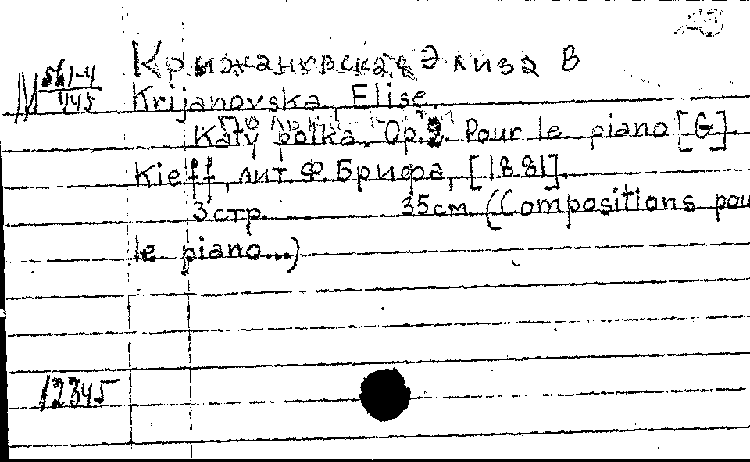 М 561-4/445
Крижановская Элиза В
Krijanovska, Elise.
Katy polka. Op.2. Pour le piano [G].
Kieff, лит Ф. Брифа, [1881].
3 стр. 35 см (Compositions pou
le piano...)
12345